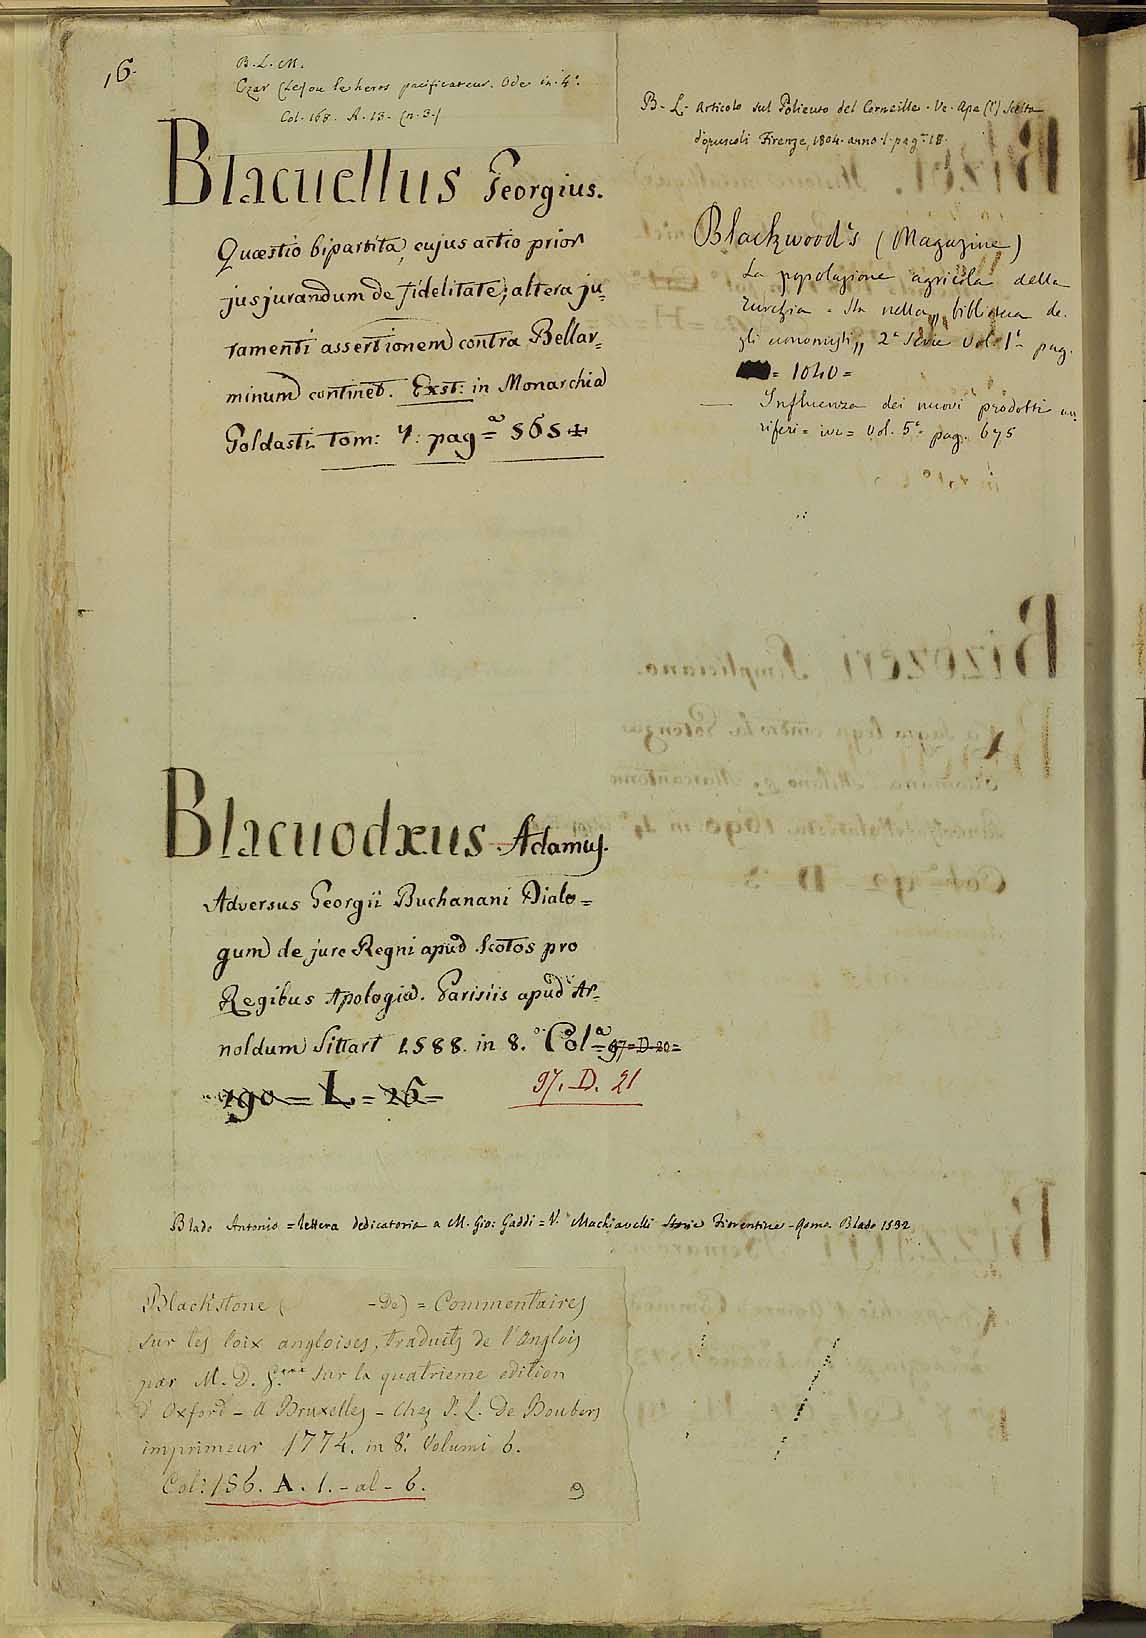 16.
B. L. M.
Czar (Le) ou le heros pacificateur. Ode in-4°.
Col. 168. A. 13. (n. 3.)
Blacuellus Georgius.
Quæstio bipartita, cujus actio prior
jusjurandum de fidelitate; altera ju=
ramenti assertionem contra Bellar=
minum continet. Exst: in Monarchia
Goldasti Tom:
pag.ª 565
B. L. Articolo sul Poliuto del Corneille. Ve. Ape (l') Scelta
d'opuscoli Firenze, 1804. anno 1. pag.ª 18.
Blackwood's (Magazine)
La popolazione agricola della
Turchia. Sta nella „ biblioteca de.
gli economisti „ 2ª Serie Vol. 1° pag.
= 1040 =
— Influenza dei nuovi prodotti au
riferi = ivi = Vol. 5° pag. 675
Blacuodæus Adamus.
Adversus Georgii Buchanani Dialo=
gum de jure Regni apud Scotos pro
Regibus Apologia. Parisiis apud Ar=
noldum Sittart 1588. in 8.° Col.ª 97=D.20=
190 = L = 26 =
97. D. 21
Blado Antonio = lettera dedicatoria a M. Gio: Gaddi = V. Machiavelli Storie Fiorentine - Roma Blado 1532
Blackstone ( -De) = Commentaires
sur les loix angloises, traduits de l'Anglois
par M. D. G.*** sur la quatrieme edition
d'Oxford - A Bruxelles - chez J. L. De Boubers
imprimeur 1774. in 8.° Volumi 6.
Col: 156. A. 1. - al - 6.
9